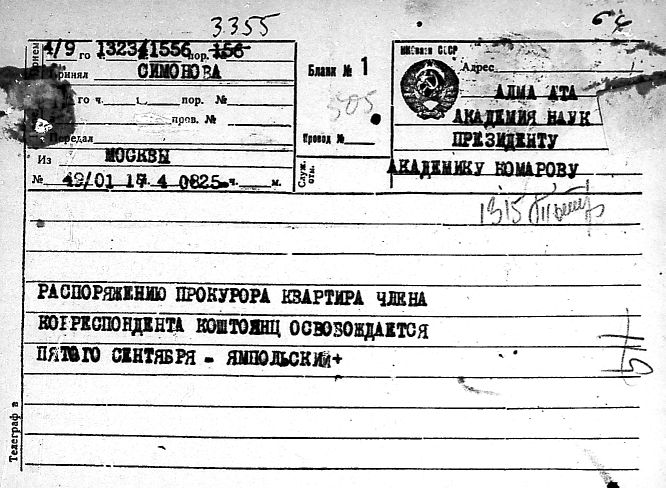 3355
64
4/9 го ч. 1323/1556 пор. 156
Принял СИМОНОВА
го ч. пор. №
пров. №
Передал
Из МОСКВЫ
№ 49/01 17 4 0825 ч. м.
Бланк № 1
505
Провод №
Служ. отм.
НКСвязи СССР
Адрес
АЛМА АТА
АКАДЕМИЯ НАУК
ПРЕЗИДЕНТУ
АКАДЕМИКУ КОМАРОВУ
1315
РАСПОРЯЖЕНИЮ ПРОКУРОРА КВАРТИРА ЧЛЕНА
КОРРЕСПОНДЕНТА КОШТОЯНЦ ОСВОБОЖДАЕТСЯ
ПЯТОГО СЕНТЯБРЯ - ЯМПОЛЬСКИЙ+
Телеграф в